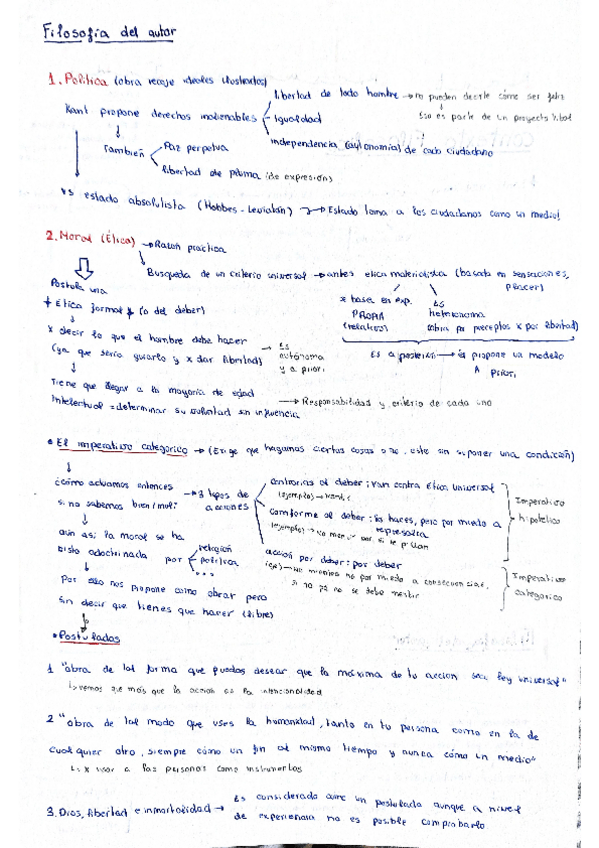 Filosofía del autor
1. Política (obra recoje ideales ilustrados)
libertad de todo hombre → no pueden decirle cómo ser feliz
Eso es parte de un proyecto vital
Kant propone derechos inalienables
Igualdad
independencia (autonomía) de cada ciudadano
También
Paz perpetua
libertad de pluma (de expresión)
vs estado absolutista (Hobbes - Leviatán) → Estado toma a los ciudadanos como un medio!
2. Moral (Ética) → Razón práctica
Busqueda de un criterio universal → antes etica materialista (basada en sensaciones, placer)
Postula una
Ética formal (o del deber)
x base en exp. PROPIA (relativos)
ES heteronoma
(obra por preceptos x por libertad)
x decir lo que el hombre debe hacer
(ya que sería guiarlo y x dar libertad)
→ Es autónoma y a priori
Es a posteriori → él propone un modelo A priori
Tiene que llegar a la mayoría de edad
intelectual = determinar su voluntad sin influencia
→ Responsabilidad y criterio de cada uno
• El imperativo categorico → (Exige que hagamos ciertas cosas o no, este sin suponer una condición)
¿cómo actuamos entonces
si no sabemos bien/mal?
→ 3 tipos de acciones
contrarias al deber: van contra Ética universal
(ejemplo) →
conforme al deber: la haces, pero por miedo a represalia
(ejemplo) → no
Imperativo hipotetico
acción por deber: por deber
(ej) → No mientes no por miedo a consecuencias,
si no pq no se debe mentir
Imperativo categorico
aún así la moral se ha
visto adoctrinada por
religión
política
...
Por ello nos propone como obrar pero
sin decir que tienes que hacer (libre)
• Postulados
1 "obra de tal forma que puedas desear que la máxima de tu accion sea ley universal"
↳ vemos que más que la acción es la intencionalidad
2 "obra de tal modo que uses la humanidad, tanto en tu persona como en la de
cualquier otro, siempre cómo un fin al mismo tiempo y nunca cómo un medio"
↳ x usar a las personas como instrumentos
3. Dios, libertad e inmortalidad → Es considerado como un postulado aunque a nivel
de experiencia no es posible comprobarlo